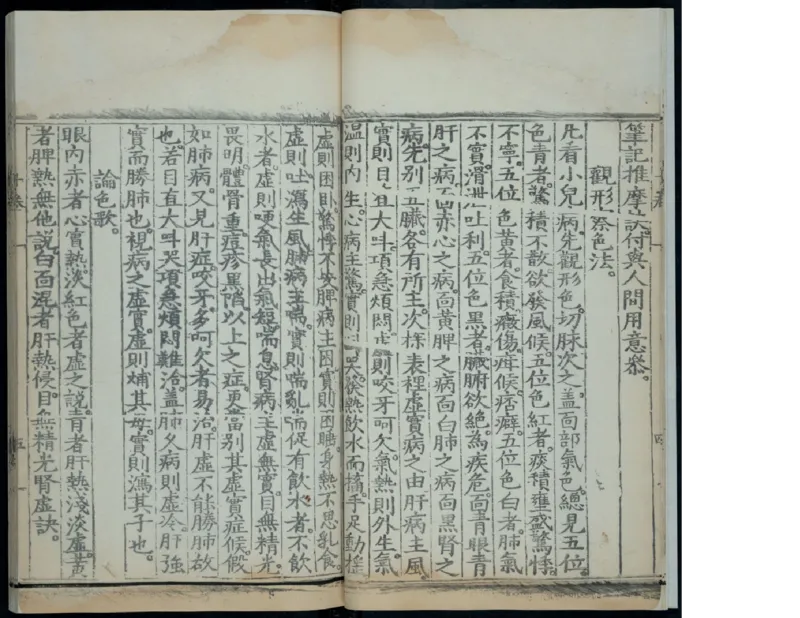 筆記推摩訣付與人間用意參。
觀形察色法。
凡看小兒病先觀形色切脉次之蓋面部氣色總見五位
色青者驚積不散欲發風候五位色紅者痰積壅盛驚悸
不寧五位色黃者食積癥傷疳候痞癖五位色白者肺氣
不實滑泄吐利五位色黑者臟腑欲絕為疾危面青眼青
肝之病面赤心之病面黃脾之病面白肺之病面黑腎之
病先別五臟各有所主次探表裡虛實病之由肝病主風
實則目直大叫項急煩悶虛則咬牙呵欠氣熱則外生氣
温則內生心病主驚實則哭發熱飲水而搐手足動搖
虛則困卧驚悸不安脾病主困實則困睡身熱不思乳食
虛則吐瀉生風肺病主喘實則喘亂喘促有飲水者不飲
水者虛則哽氣長出氣短喘息腎病主虛無實目無精光
畏明體骨重痘疹黑陷以上之症更當別其虛實症候假
如肺病又見肝症咬牙多呵欠者易治肝虛不能勝肺故
也若目直大叫哭項急煩悶難治蓋肺久病則虛冷肝強
實而勝肺也視病之虛實虛則補其母實則瀉其子也。
論色歌。
眼內赤者心實熱淡紅色者虛之說青者肝熱淺淡虛黃
者脾熱無他說白面混者肺熱侵目無精光腎虛訣。